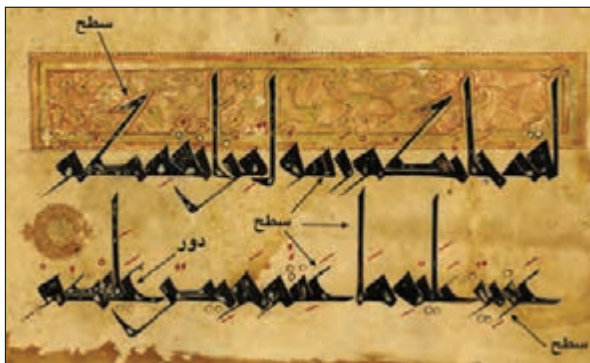 سطح
لقد جاكم رسول من انفسكم
سطح
دور
عزيز عليه ما عنتم حريص عليكم
سطح